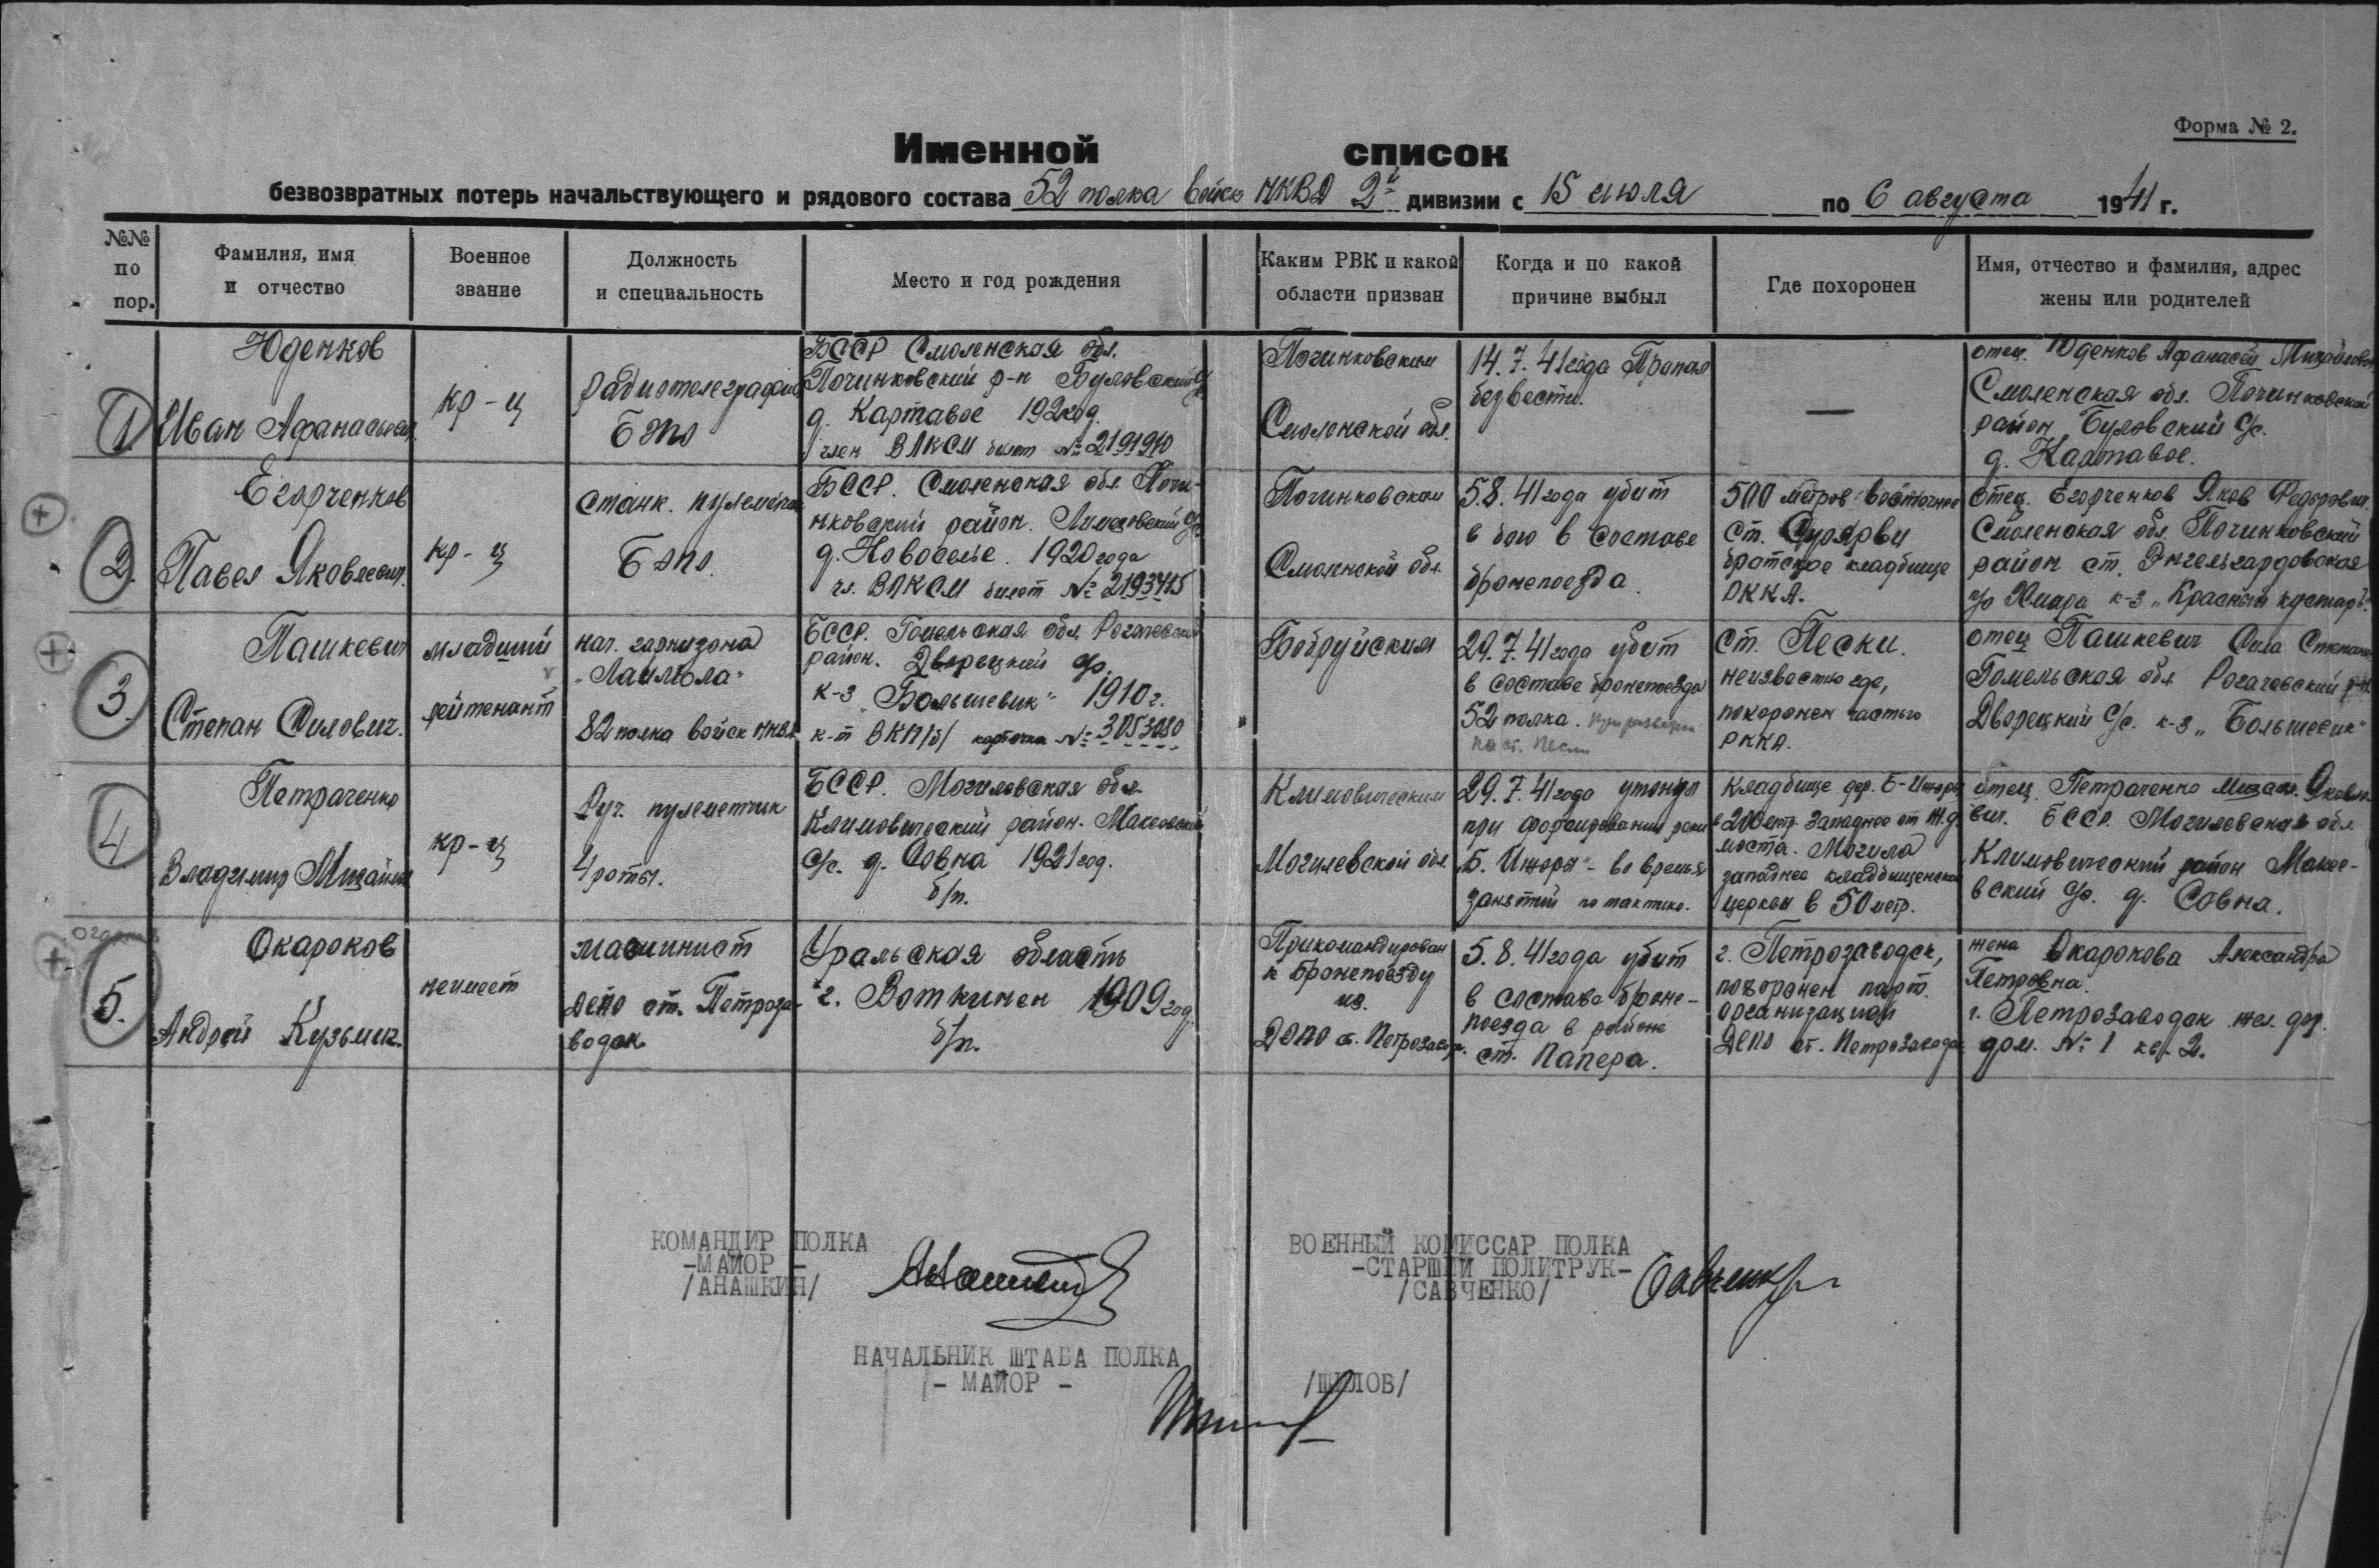 Форма № 2.
Именной список
безвозвратных потерь начальствующего и рядового состава 52 полка войск НКВД 2й дивизии с 15 июля по 6 августа 1941 г.
№№
по
пор.
Фамилия, имя
и отчество
Военное
звание
Должность
и специальность
Место и год рождения
Каким РВК и какой
области призван
Когда и по какой
причине выбыл
Где похоронен
Имя, отчество и фамилия, адрес
жены или родителей
1.
Юденков
Иван Афанасьевич
кр-ц
радиотелеграфист
Бэпо
БССР Смоленская обл.
Починковский р-н Буловский с/с
д. Картавое
член ВЛКСМ билет № 2191910
Починковским
Смоленской обл.
14.7.41 года Пропал
без вести.
—
отец. Юденков Афанасий Михайлович
Смоленская обл. Починковский
район Буловский с/с.
д. Картавое.
2.
Егорченков
Павел Яковлевич.
кр-ц
станк. пулеметчик
Бэпо.
БССР. Смоленская обл Почи-
нковский район. с/с.
д. Новоселье. 1920 года
чл. ВЛКСМ билет № 2193415
Починковским
Смоленской обл.
5.8.41 года убит
в бою в составе
бронепоезда.
500 метров восточнее
ст. Суоярви
братское кладбище
РККА.
отец. Егорченков Яков Федорович.
Смоленская обл. Починковский
район ст. Энгельгардовская
п/о Хмара к-з „Красный кустарь".
3.
Пашкевич
Степан Силович.
младший
лейтенант
нач. гарнизона
„Лаймола"
82 полка войск НКВД
БССР. Гомельская обл. Рогачевский
район. Дворецкий с/с.
к-з „Большевик" 1910 г.
к-т ВКП/б/ карточка № 3053080
Бобруйским
29.7.41 года убит
в составе бронепоезда
52 полка. При разведки
на ст. Пески
ст. Пески.
неизвестно где,
похоронен частью
РККА.
отец Пашкевич Сила Степанов
Гомельская обл Рогачевский р-н
Дворецкий с/с. к-з „Большевик"
4
Петраченко
Владимир Михайлов
кр-ц
Руч. пулеметчик
4 роты.
БССР. Могилевская обл.
Климовический район. Макеевский
с/с. д. Совна 1921 год.
б/п.
Климовическим
Могилевской обл.
29.7.41 года утонул
при форсировании реки
„Б. Ижора" - во время
занятий по тактике.
Кладбище дер. Б-Ижора
в 200 метр. западнее от ж.д.
моста. Могила
западнее кладбищенской
церкви в 50 метр.
отец. Петраченко Михаил. Яковле-
вич. БССР. Могилевская обл.
Климовический район Макее-
вский с/с. д. Совна.
5.
Окароков
Андрей Кузьмич.
не имеет
машинист
Депо ст. Петроза-
водск
Уральская область
г. Воткинск 1909 год
б/п.
Прикомандирован
к бронепоезду
из.
Депо ст. Петрозавод.
5.8.41 года убит
в составе броне-
поезда в районе
ст. Папера.
г. Петрозаводск,
похоронен парт.
организацией
Депо ст. Петрозаводск
жена Окарокова Александра
Петровна.
г. Петрозаводск жел. дор.
дом. № 1 кв. 2.
КОМАНДИР ПОЛКА
-МАЙОР -
/АНАШКИН/
ВОЕННЫЙ КОМИССАР ПОЛКА
-СТАРШИЙ ПОЛИТРУК-
/САВЧЕНКО/
Савченко
НАЧАЛЬНИК ШТАБА ПОЛКА
- МАЙОР -
/ШИЛОВ/